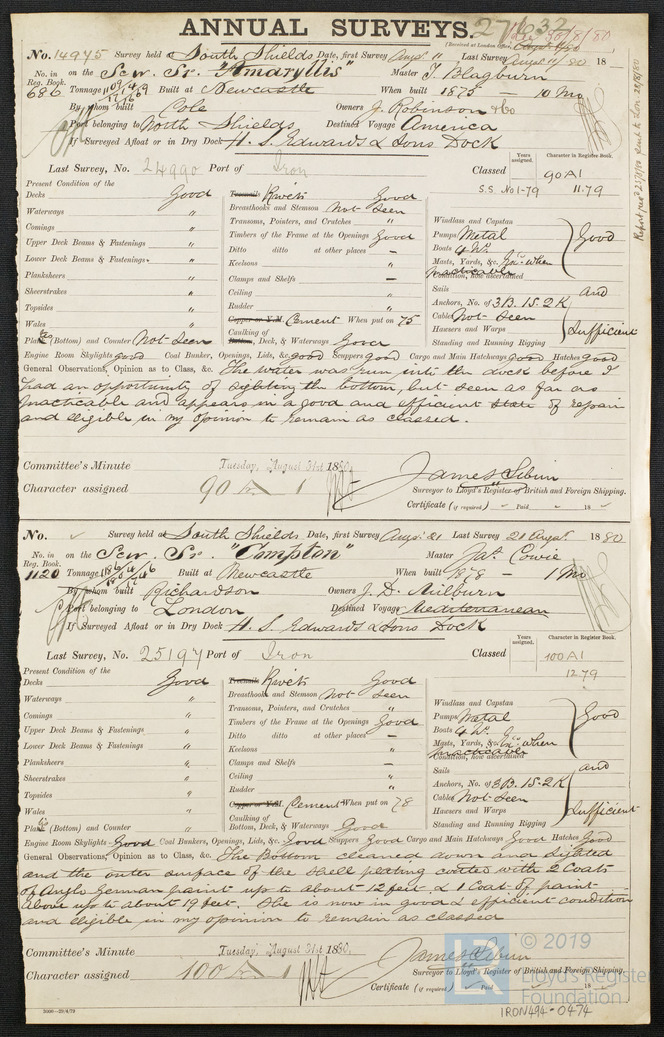 ANNUAL SURVEYS.
(Received at London Office, 30/8/80
No. 14975 Survey held at South Shields Date, first Survey Augt Last Survey Augt 11/80 18
No. in Reg. Book. 686 on the Scw. Sr. "Amaryllis" Master T. Blagburn
Tonnage Built at Newcastle When built 1875 — 10 Mo
By whom built Cole Owners J. Robinson & Co
Port belonging to North Shields Destined Voyage America
If Surveyed Afloat or in Dry Dock H. S. Edwards & Sons Dock
Last Survey, No. 24990 Port of Iron Classed
Years assigned. Character in Register Book.
90 A1
S.S. No 1-79 11.79
Present Condition of the
Decks Good
Waterways "
Comings "
Upper Deck Beams & Fastenings "
Lower Deck Beams & Fastenings "
Planksheers "
Sheerstrakes "
Topsides "
Wales "
Plank (Bottom) and Counter Not Seen
Treenails Rivets Good
Breasthooks and Stemson Not Seen
Transoms, Pointers, and Crutches "
Timbers of the Frame at the Openings Good
Ditto ditto at other places —
Keelsons "
Clamps and Shelfs —
Ceiling "
Rudder "
Copper or Y.M. Cement When put on 75
Caulking of Bottom, Deck, & Waterways Good
Windlass and Capstan
Pumps Metal
Boats 4 Wd.
Masts, Yards, &c. Gd. when
Condition, how ascertained practicable
Sails
Anchors, No. of 3B. 1S. 2K
Cables Not Seen
Hawsers and Warps
Standing and Running Rigging
Good
and
Sufficient
Engine Room Skylights good Coal Bunker, Openings, Lids, &c. good Scuppers good Cargo and Main Hatchways good Hatches good
General Observations, Opinion as to Class, &c. The water was run into the dock before I
had an opportunity of sighting the bottom, but seen as far as
practicable and appears in a good and efficient state of repair
and eligible in my opinion to remain as classed.
Committee's Minute Tuesday, August 31st 1880.
Character assigned 90 1
James Sibun
Surveyor to Lloyd's Register of British and Foreign Shipping.
Certificate (if required) Paid 18
No. Survey held at South Shields Date, first Survey Augt 21 Last Survey 21 Augt. 1880
No. in Reg. Book. 1120 on the Scw. Sr. "Compton" Master Jas. Cowie
Tonnage Built at Newcastle When built 1878 — 1 Mo
By whom built Richardson Owners J. D. Milburn
Port belonging to London Destined Voyage Mediterranean
If Surveyed Afloat or in Dry Dock H. S. Edwards & Sons Dock
Last Survey, No. 25197 Port of Iron Classed
Years assigned. Character in Register Book.
100 A1
12.79
Present Condition of the
Decks Good
Waterways "
Comings "
Upper Deck Beams & Fastenings "
Lower Deck Beams & Fastenings "
Planksheers "
Sheerstrakes "
Topsides "
Wales "
Plank (Bottom) and Counter "
Treenails Rivets Good
Breasthooks and Stemson Not Seen
Transoms, Pointers, and Crutches "
Timbers of the Frame at the Openings Good
Ditto ditto at other places —
Keelsons "
Clamps and Shelfs —
Ceiling "
Rudder "
Copper or Y.M. Cement When put on 78
Caulking of Bottom, Deck, & Waterways Good
Windlass and Capstan
Pumps Metal
Boats 4 Wd.
Masts, Yards, &c. Gd. when
Condition, how ascertained practicable
Sails
Anchors, No. of 3B. 1S. 2K
Cables Not Seen
Hawsers and Warps
Standing and Running Rigging
Good
and
Sufficient
Engine Room Skylights Good Coal Bunkers, Openings, Lids, &c. Good Scuppers Good Cargo and Main Hatchways Good Hatches Good
General Observations, Opinion as to Class, &c. The Bottom cleaned down and sighted
and the outer surface of the shell plating coated with 2 Coats
of Anglo German paint up to about 12 feet, & 1 Coat of paint
above up to about 19 feet. She is now in good & efficient condition
and eligible in my opinion to remain as classed
Committee's Minute Tuesday, August 31st 1880.
Character assigned 100 1
James Sibun
Surveyor to Lloyd's Register of British and Foreign Shipping.
Certificate (if required) Paid 18
© 2019
Lloyd's Register
Foundation
IRON494-0474